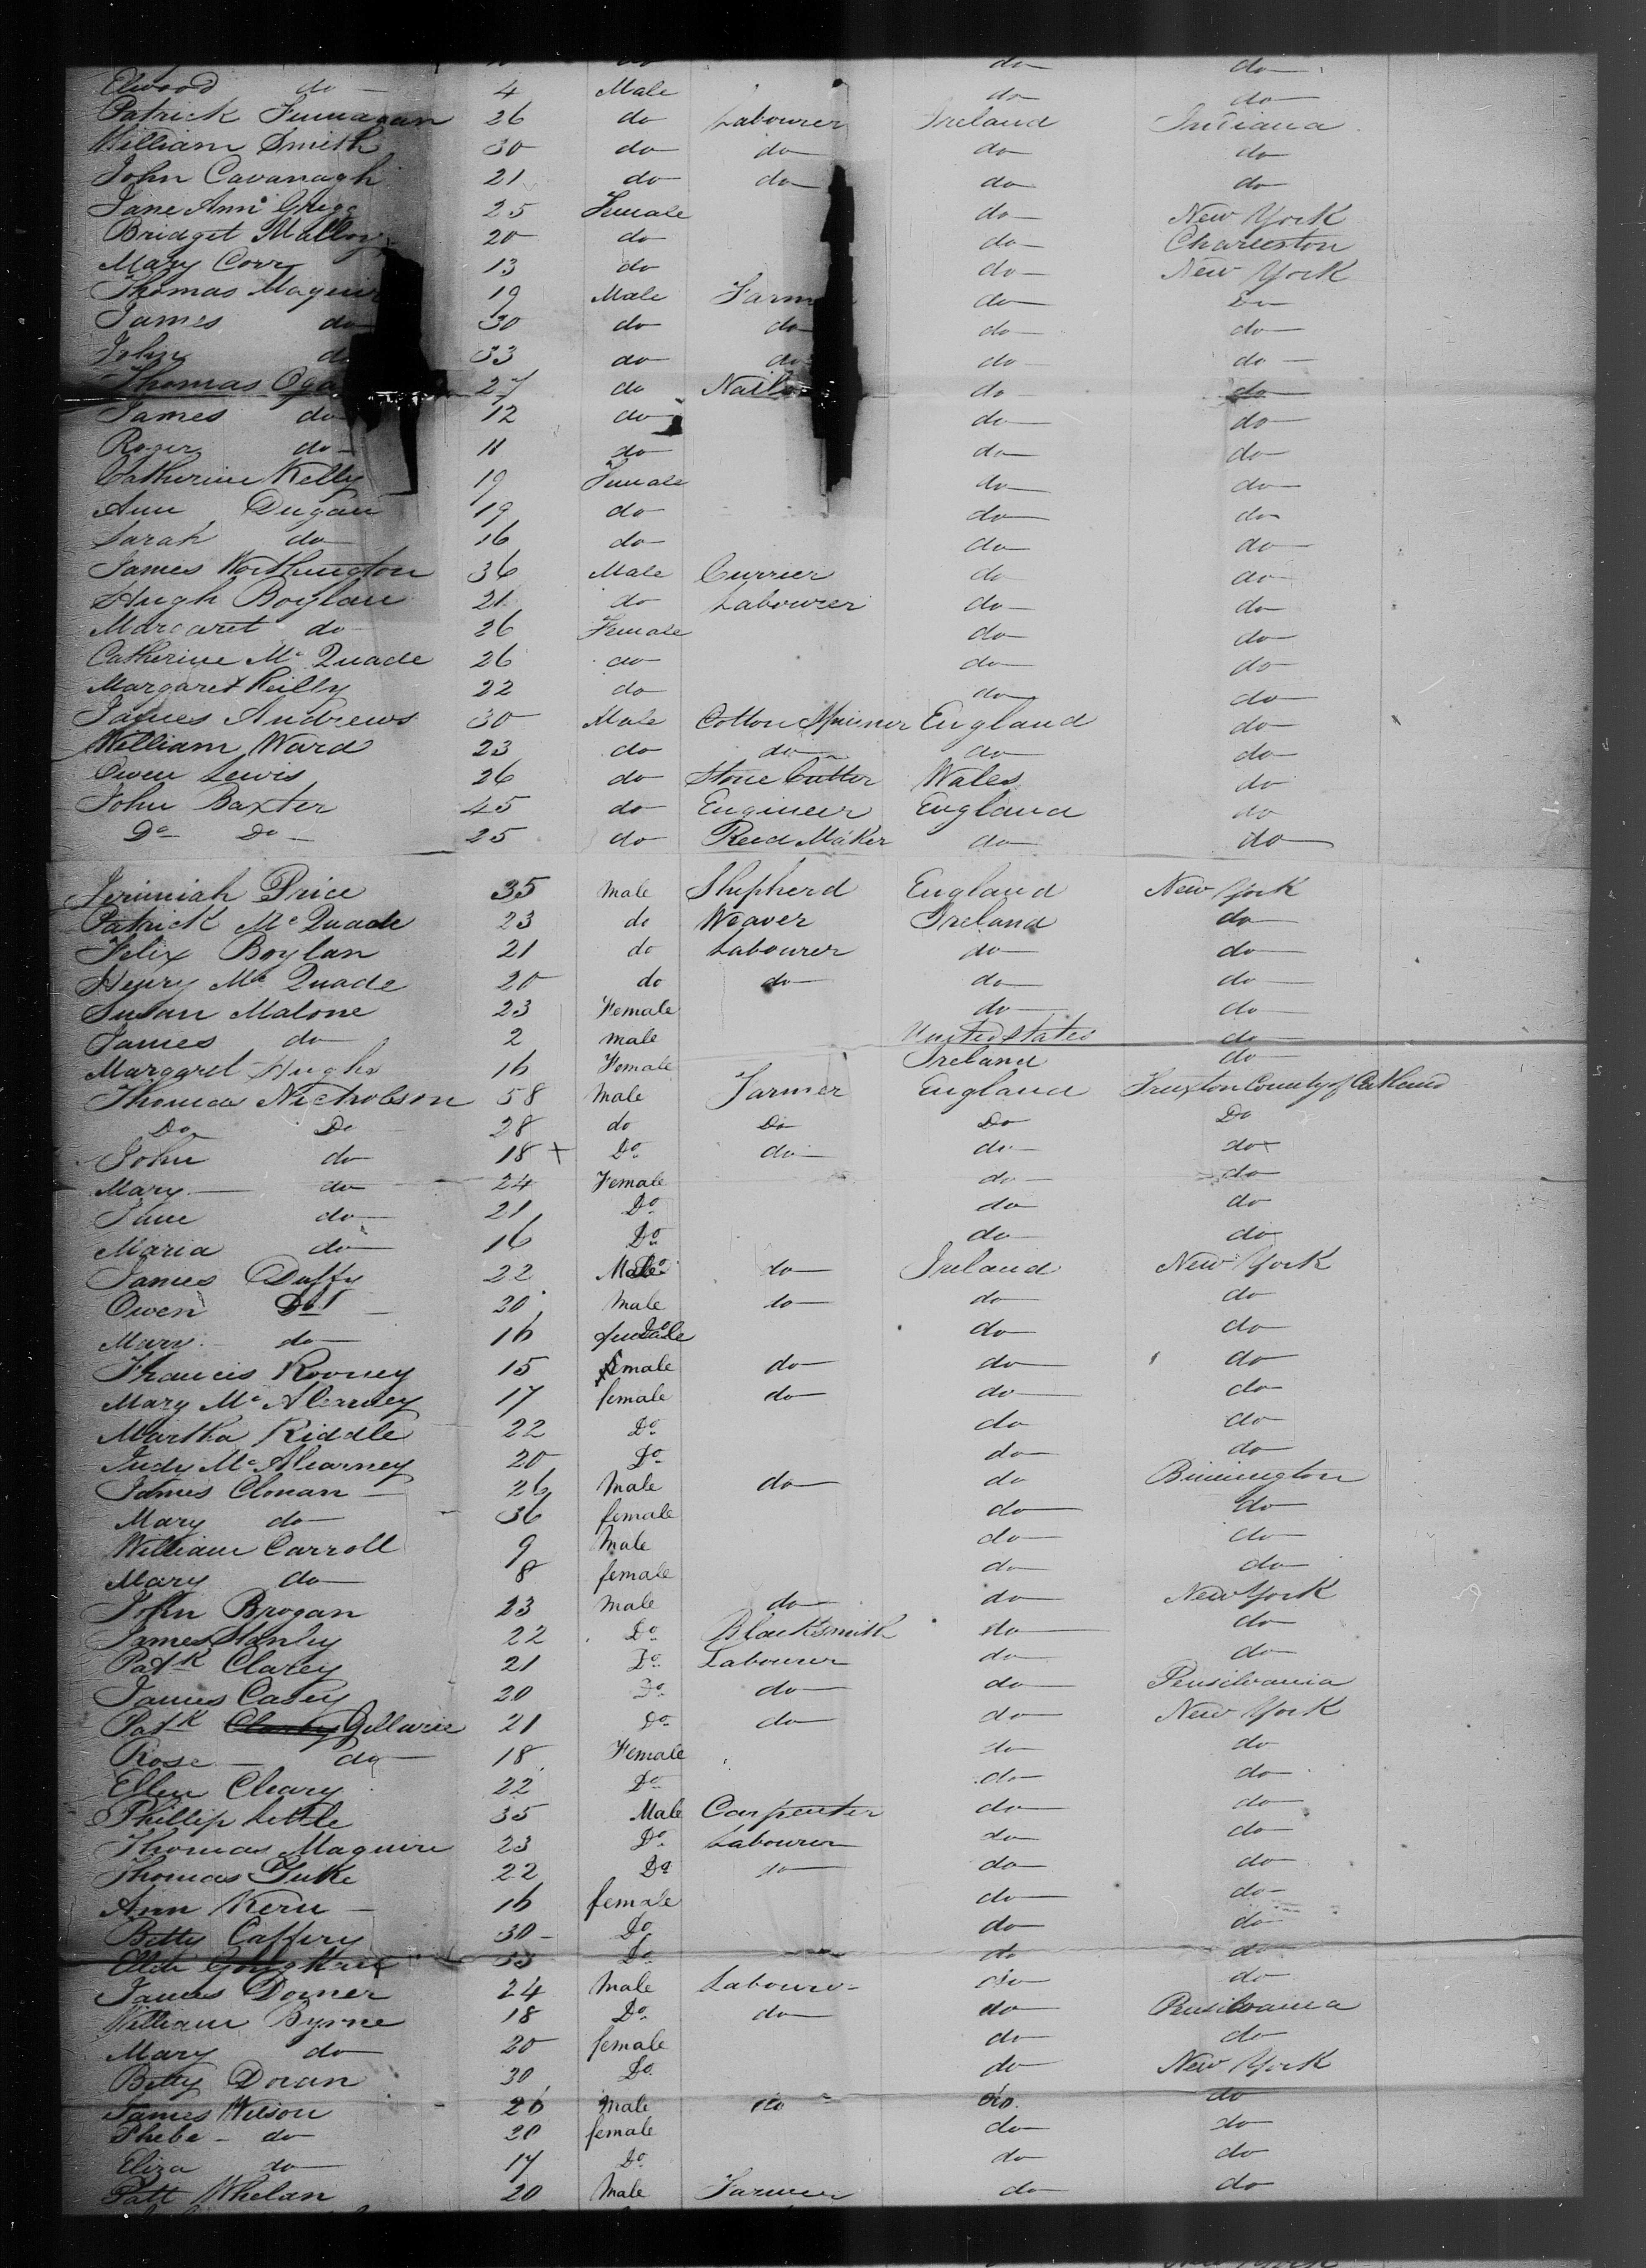 do do
Elwood do 4 Male do do
Patrick Finnagan 26 do Labourer Ireland Indiana
William Smith 30 do do do do
John Cavanagh 21 do do do do
Jane Ann Grigg 25 Female do New York
Bridget Malloy 20 do do Charleston
Mary Corr 13 do do New York
Thomas Maguir 19 Male Farm do Do
James do 30 do do do do
John do 33 do do do do
Thomas Oga 27 do Nailor do do
James do 12 do do do
Roger do 11 do do do
Catherine Kelly 19 Female do do
Ann Dugan 19 do do do
Sarah do 16 do do do
James Worthington 36 Male Currier do do
Hugh Boylan 21 do Labourer do do
Margaret do 26 Female do do
Catherine Mc Quade 26 do do do
Margaret Reilly 22 do do do
James Andrews 30 Male Cotton Spinner England do
William Ward 23 do do do do
Owen Lewis 26 do Stone Cutter Wales do
John Baxter 45 do Engineer England do
Do Do 25 do Reed Maker do do
Jerimiah Price 35 Male Shepherd England New York
Patrick Mc Quade 23 do Weaver Ireland do
Felix Boylan 21 do Labourer do do
Henry Mc Quade 20 do do do do
Susan Malone 23 Female do do
James do 2 male United States do
Margaret Hughs 16 Female Ireland do
Thomas Nicholson 58 Male Farmer England Truxton County of Cortland
Do Do 28 do Do Do Do
John do 18 + Do do do do
Mary do 24 Female do do
Jane do 21 Do do do
Maria do 16 Do do do
James Duffy 22 Male do Ireland New York
Owen Do 20 Male do do do
Mary do 16 female do do
Francis Rooney 15 male do do do
Mary Mc Alearney 17 female do do do
Martha Riddle 22 Do do do
Judy Mc Alearney 20 Do do do
James Clonan 26 Male do do Binnington
Mary do 36 female do do
William Carroll 9 Male do do
Mary do 8 female do do
John Brogan 23 Male do do New York
James Stanley 22 Do Blacksmith do do
Patk Clarey 21 Do Labourer do do
James Casey 20 Do do do Pensilvania
Patk Gillaric 21 Do do do New York
Rose do 18 Female do do
Ellen Cleary 22 Do do do
Phillip Little 35 Male Carpenter do do
Thomas Maguire 23 Do Labourer do do
Thomas Tuke 22 Do do do do
Ann Kern 16 female do do
Betty Caffery 30 Do do do
33 Do do do
James Dorner 24 Male Labourer do do
William Byrne 18 Do do do Pensilvania
Mary do 20 female do do
Betty Doran 30 Do do New York
James Wilson 26 Male do do do
Phebe do 20 female do do
Eliza do 17 Do do do
Patt Whelan 20 Male Farmer do do